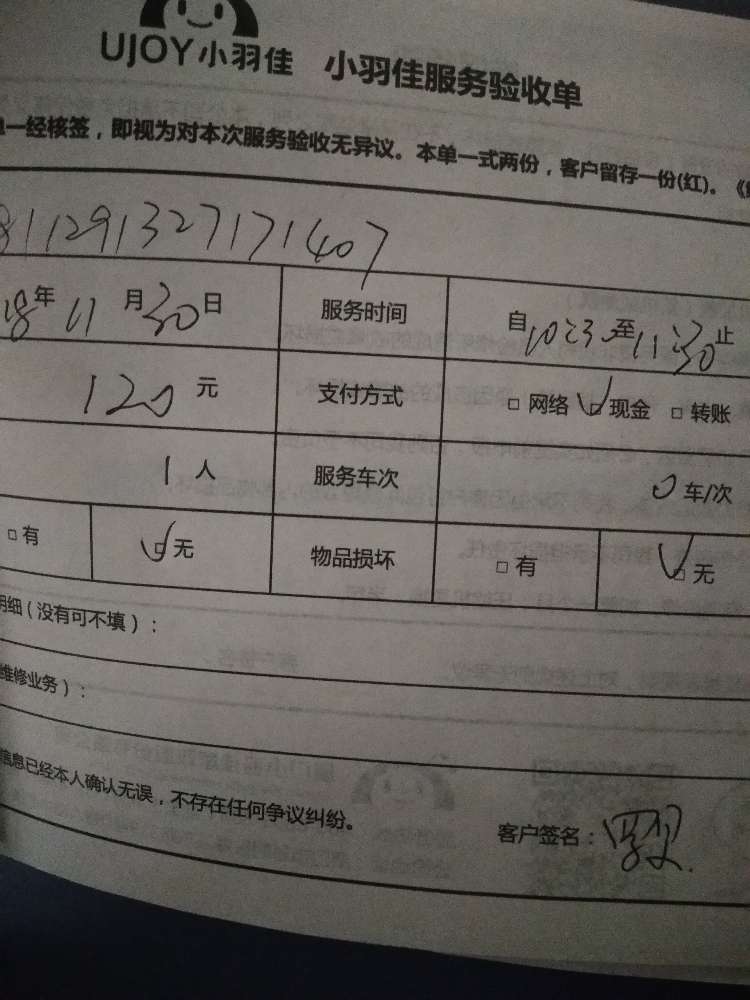 UJOY小羽佳 小羽佳服务验收单
一经核签，即视为对本次服务验收无异议。本单一式两份，客户留存一份(红)。《
811291327171407
18年11月30日 服务时间 自10:30至11:30止
120元 支付方式 □网络 ☑现金 □转账
1人 服务车次 0车/次
□有 ☑无 物品损坏 □有 ☑无
明细（没有可不填）：
维修业务）：
信息已经本人确认无误，不存在任何争议纠纷。 客户签名：